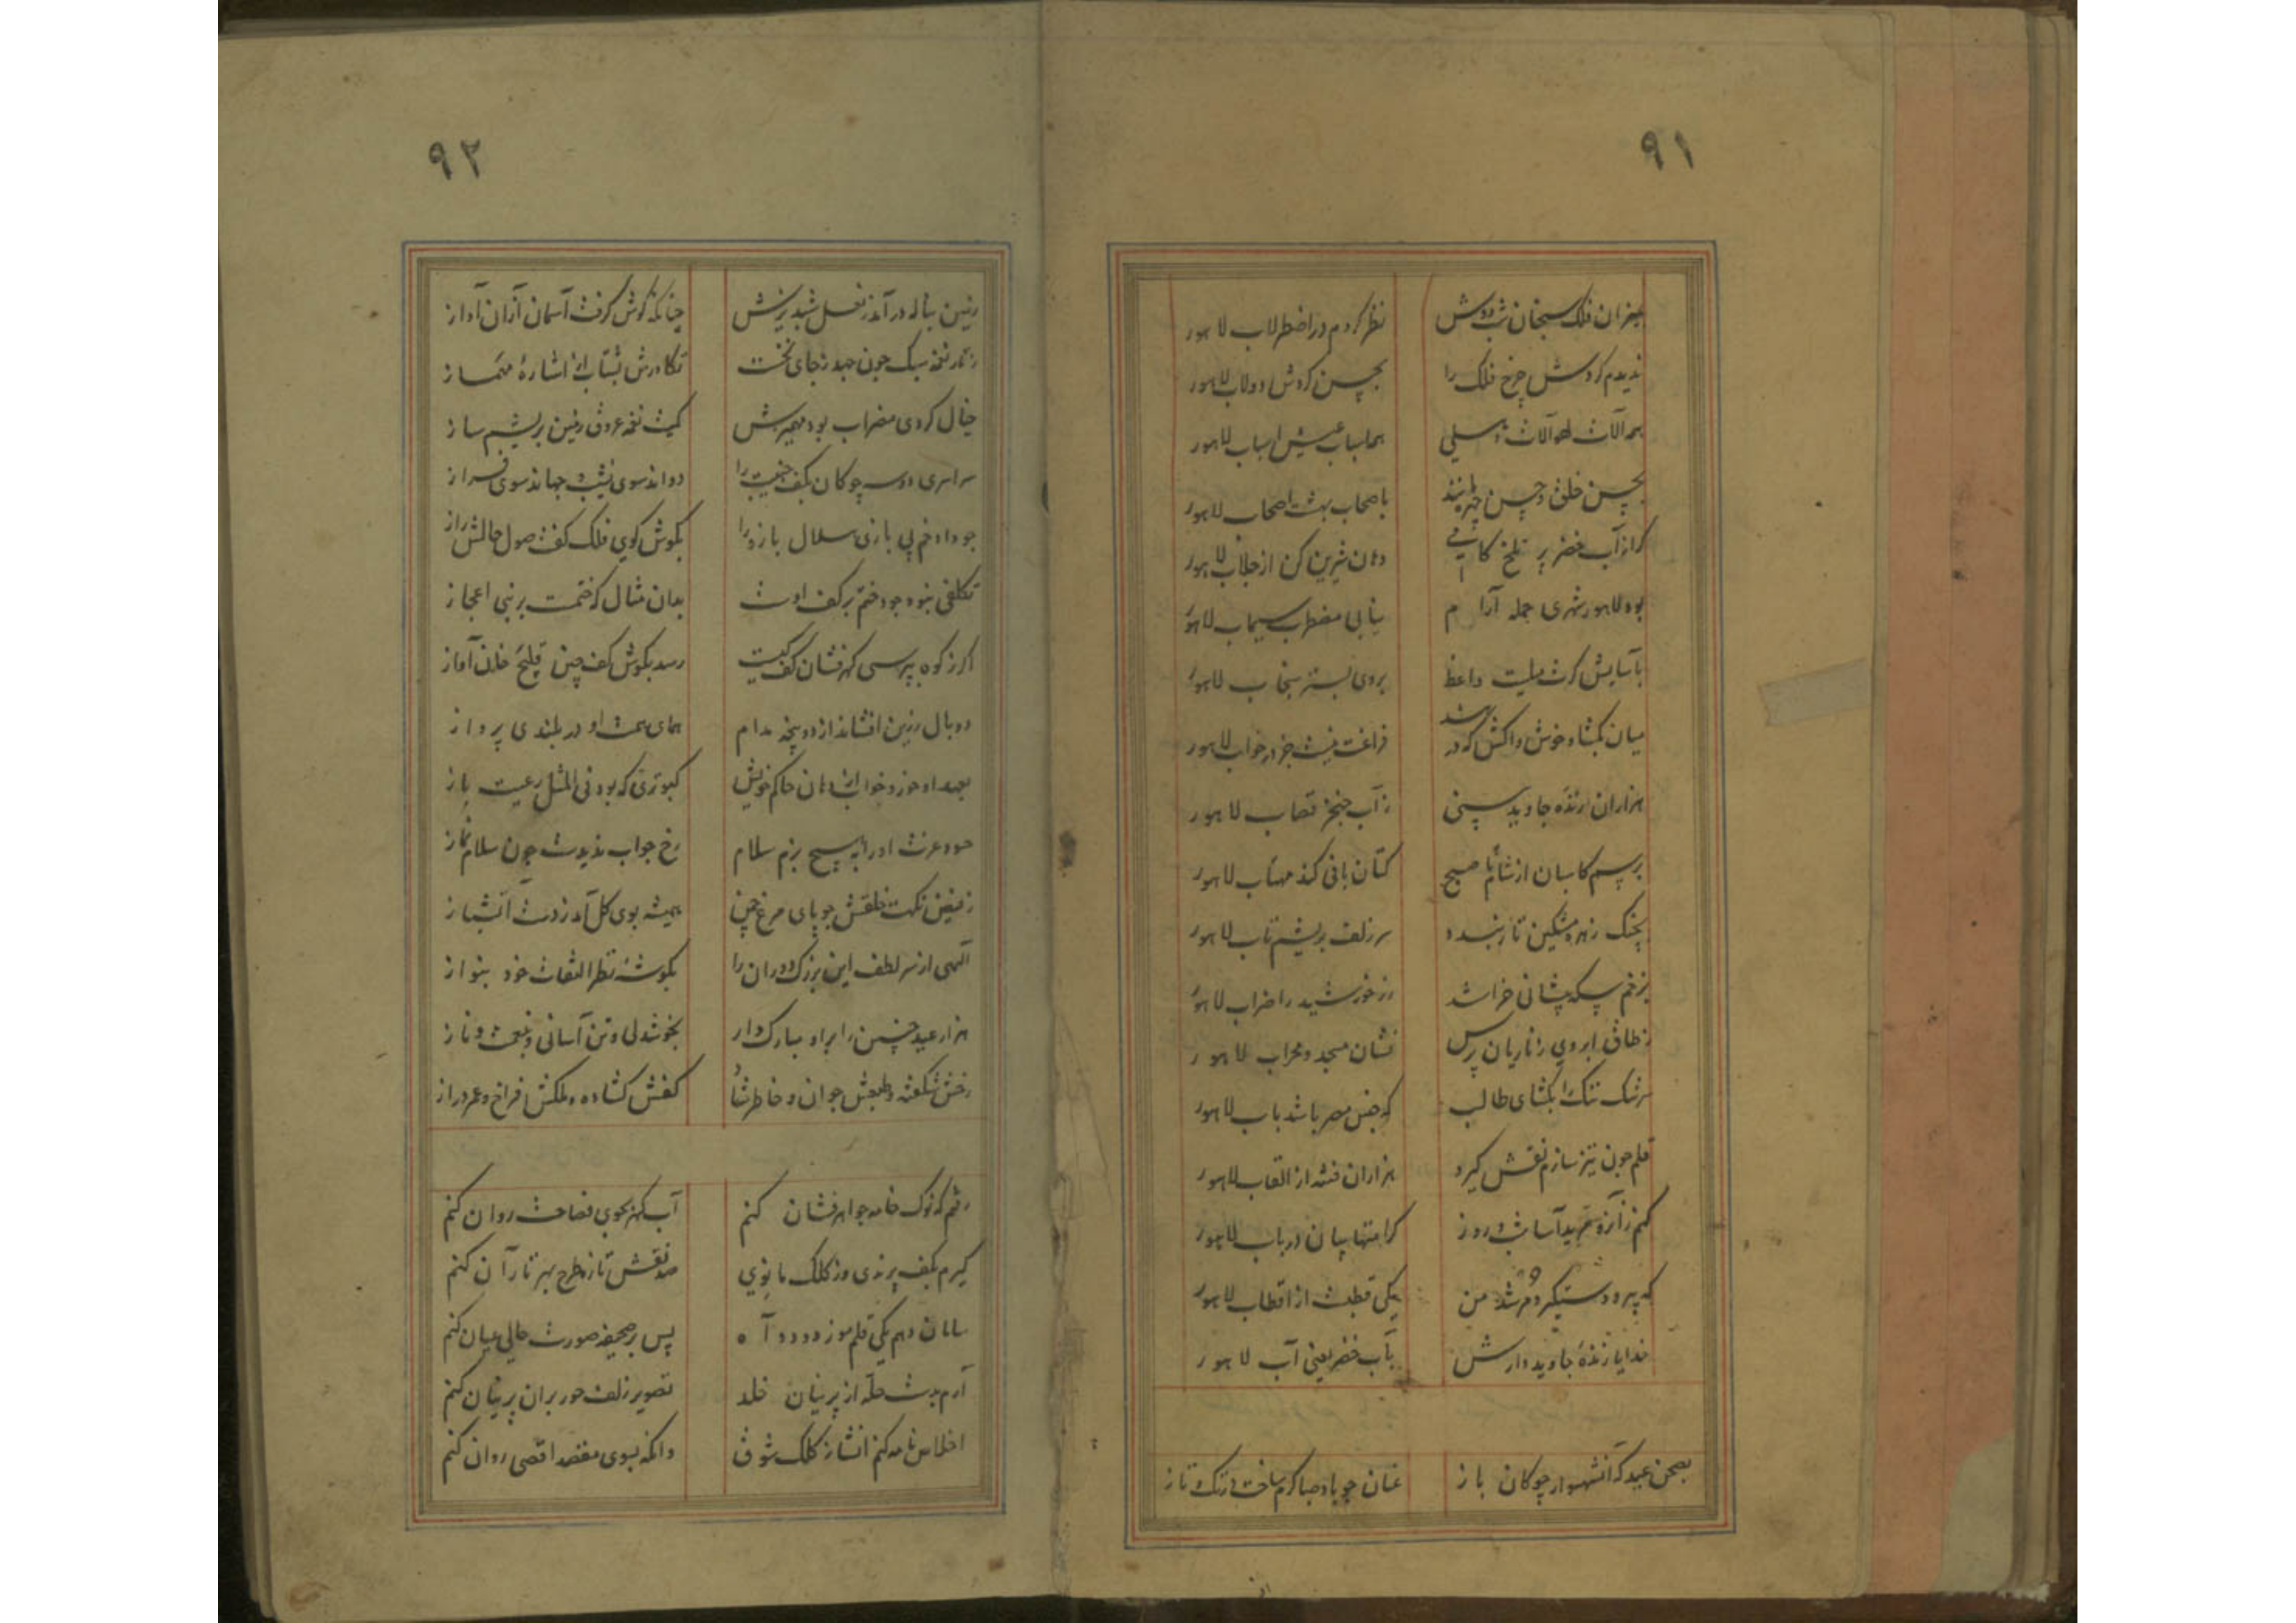 ۹۱
بمیزان فلک سنجان شب دوش نظر کردم در اضطرلاب لاهور
ندیدم گردش چرخ فلک را بحسن گردش دولاب لاهور
همه آلات لهو آلات همه اسباب عیش اسباب لاهور
بحسن خلق و حسن چهره مانند باصحاب بهشت اصحاب لاهور
گر از آب خضر پر تلخ کامی دهان شیرین کن از جلاب لاهور
بود لاهور شهری جمله آرام نیابی مضطرب سیماب لاهور
بآسایش گرت میلیست واعظ بروی بستر سنجاب لاهور
میان بگشا و خوش واکش که در شهد فراغت نیست جز در خواب لاهور
هزاران زنده جاوید بینی ز آب خنجر قصاب لاهور
برسم کاسبان از شام تا صبح کتان بافی کند مهتاب لاهور
بچنگ زهره مشکین تار بندد سر زلف بریشم تاب لاهور
بزخم سکه پیشانی خراشد زر خورشید را ضراب لاهور
ز طاق ابروی زناریان پرس نشان مسجد و محراب لاهور
سرشک تنگ را بگشای طالب که جنس مصر باشد باب لاهور
قلم چون تیز سازم نقش گیرد هزاران فتنه از القاب لاهور
کنم شب و روز کرامتها بیان در باب لاهور
که پیر و دستگیر و مرشد من یکی قطبست از اقطاب لاهور
خدایا زنده جاوید دارش بآب خضر یعنی آب لاهور
بصحن عید که آن شهسوار چوکان باز عنان چو باد صبا گرم ساخت در تک و تاز
۹۲
زمین بناله در آمد ز نعل شبدیزش چنانکه گوش گرفت آسمان از آن آواز
سبک چون جهد ز جای نخست تکاورش بشتاب از اشاره مهماز
خیال کردی مضراب بود مهمیزش کمیت نغمه عروق زمین بریشم ساز
سراسری دو سه چوکان بکف جنیبت را دواند سوی نشیب و جهاند سوی فراز
چو داد خم پی بازی هلال بازو را بگوش گوی فلک گفت صولجانش راز
تکلفی نبود جود ختم بر کف اوست بدان مثال که ختمست بر نبی اعجاز
اگر ز کوه بپرسی گهرفشان کف کیست رسد بگوش کف چین قلیج خان آواز
دو بال زرین افشاند از دو پنجه مدام همای همت او در بلندی پرواز
بعهد او خورد خواب از دهان حاکم خویش کبوتری که بود فی المثل رعیت باز
حسود عزت او را بهیچ بزم سلام رخ جواب ندیدست چون سلام نماز
ز فیض نکهت خلقش چو پای مرغ چمن همیشه بوی گل آمد ز دست آتشباز
الهی از سر لطف این بزرگ دوران را بگوشه نظر التفات خود بنواز
هزار عید چنین را برو مبارک دار بخوشدلی و تن آسانی و نعمت و ناز
رخش شکفته و طبعش جوان و خاطر شاد کفش گشاده و ملکش فراخ و عمر دراز
رفتم که نوک خامه جواهرفشان کنم آب گهر بجوی فصاحت روان کنم
گیرم بکف پرندی و ز کلک مانوی صد نقش تازه طرح بهر تار آن کنم
سامان دهم یکی قلم مو ز دود آه پس بر صحیفه صورت حالی عیان کنم
آرم بدست حله از پرنیان خلد تصویر زلف حور بران پرنیان کنم
اخلاص نامه کنم انشا ز کلک شوق وانگه بسوی مقصد اقصی روان کنم